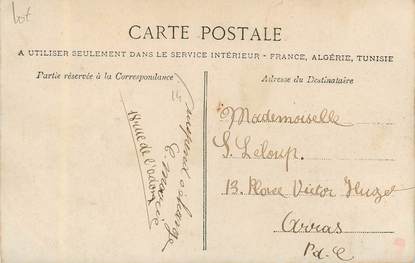 lot
CARTE POSTALE
A UTILISER SEULEMENT DANS LE SERVICE INTÉRIEUR - FRANCE, ALGÉRIE, TUNISIE
Partie réservée à la Correspondance
Adresse du Destinataire
14
échange
E.
rue de
Mademoiselle
S. Leloup.
13. Place Victor Hugo
Arras
P.d.C